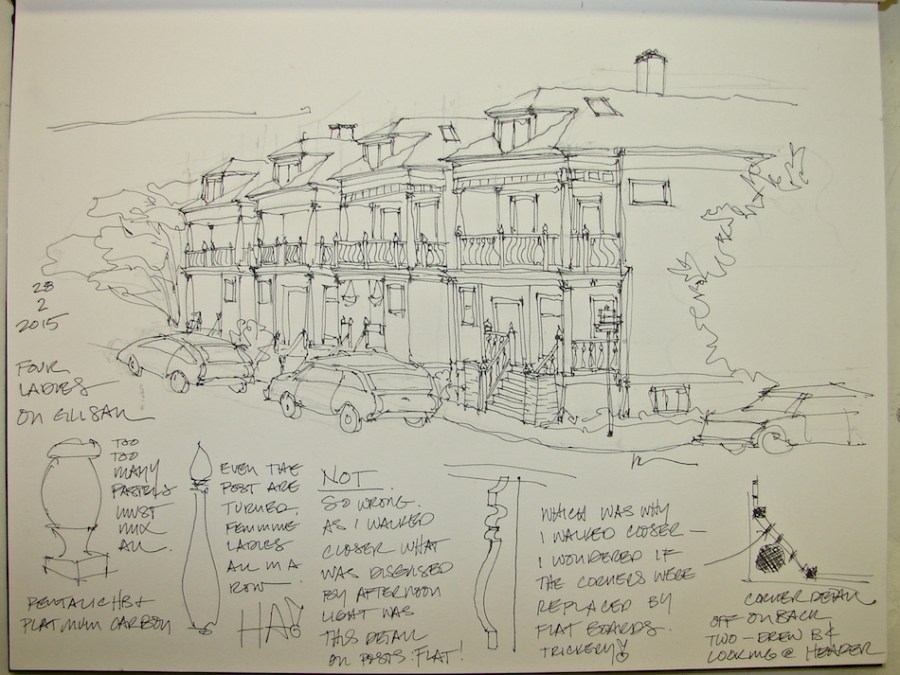 28
2
2015
FOUR
LADIES
ON ELLISAN
TOO
TOO
MANY
PASTELS
MUST
MIX
ALL.
PENTALIC HB &
PLATINUM CARBON
EVEN THE
POST ARE
TURNED.
FEMININE
LADIES
ALL IN A
ROW
HA!
NOT.
SO WRONG.
AS I WALKED
CLOSER WHAT
WAS DISGUISED
BY AFTERNOON
LIGHT WAS
THIS DETAIL
ON POSTS. FLAT!
WHICH WAS WHY
I WALKED CLOSER —
I WONDERED IF
THE CORNERS WERE
REPLACED BY
FLAT BOARDS.
TRICKERY!
CORNER DETAIL
OFF ON BACK
TWO - DREW BY
LOOKING @ HEADER